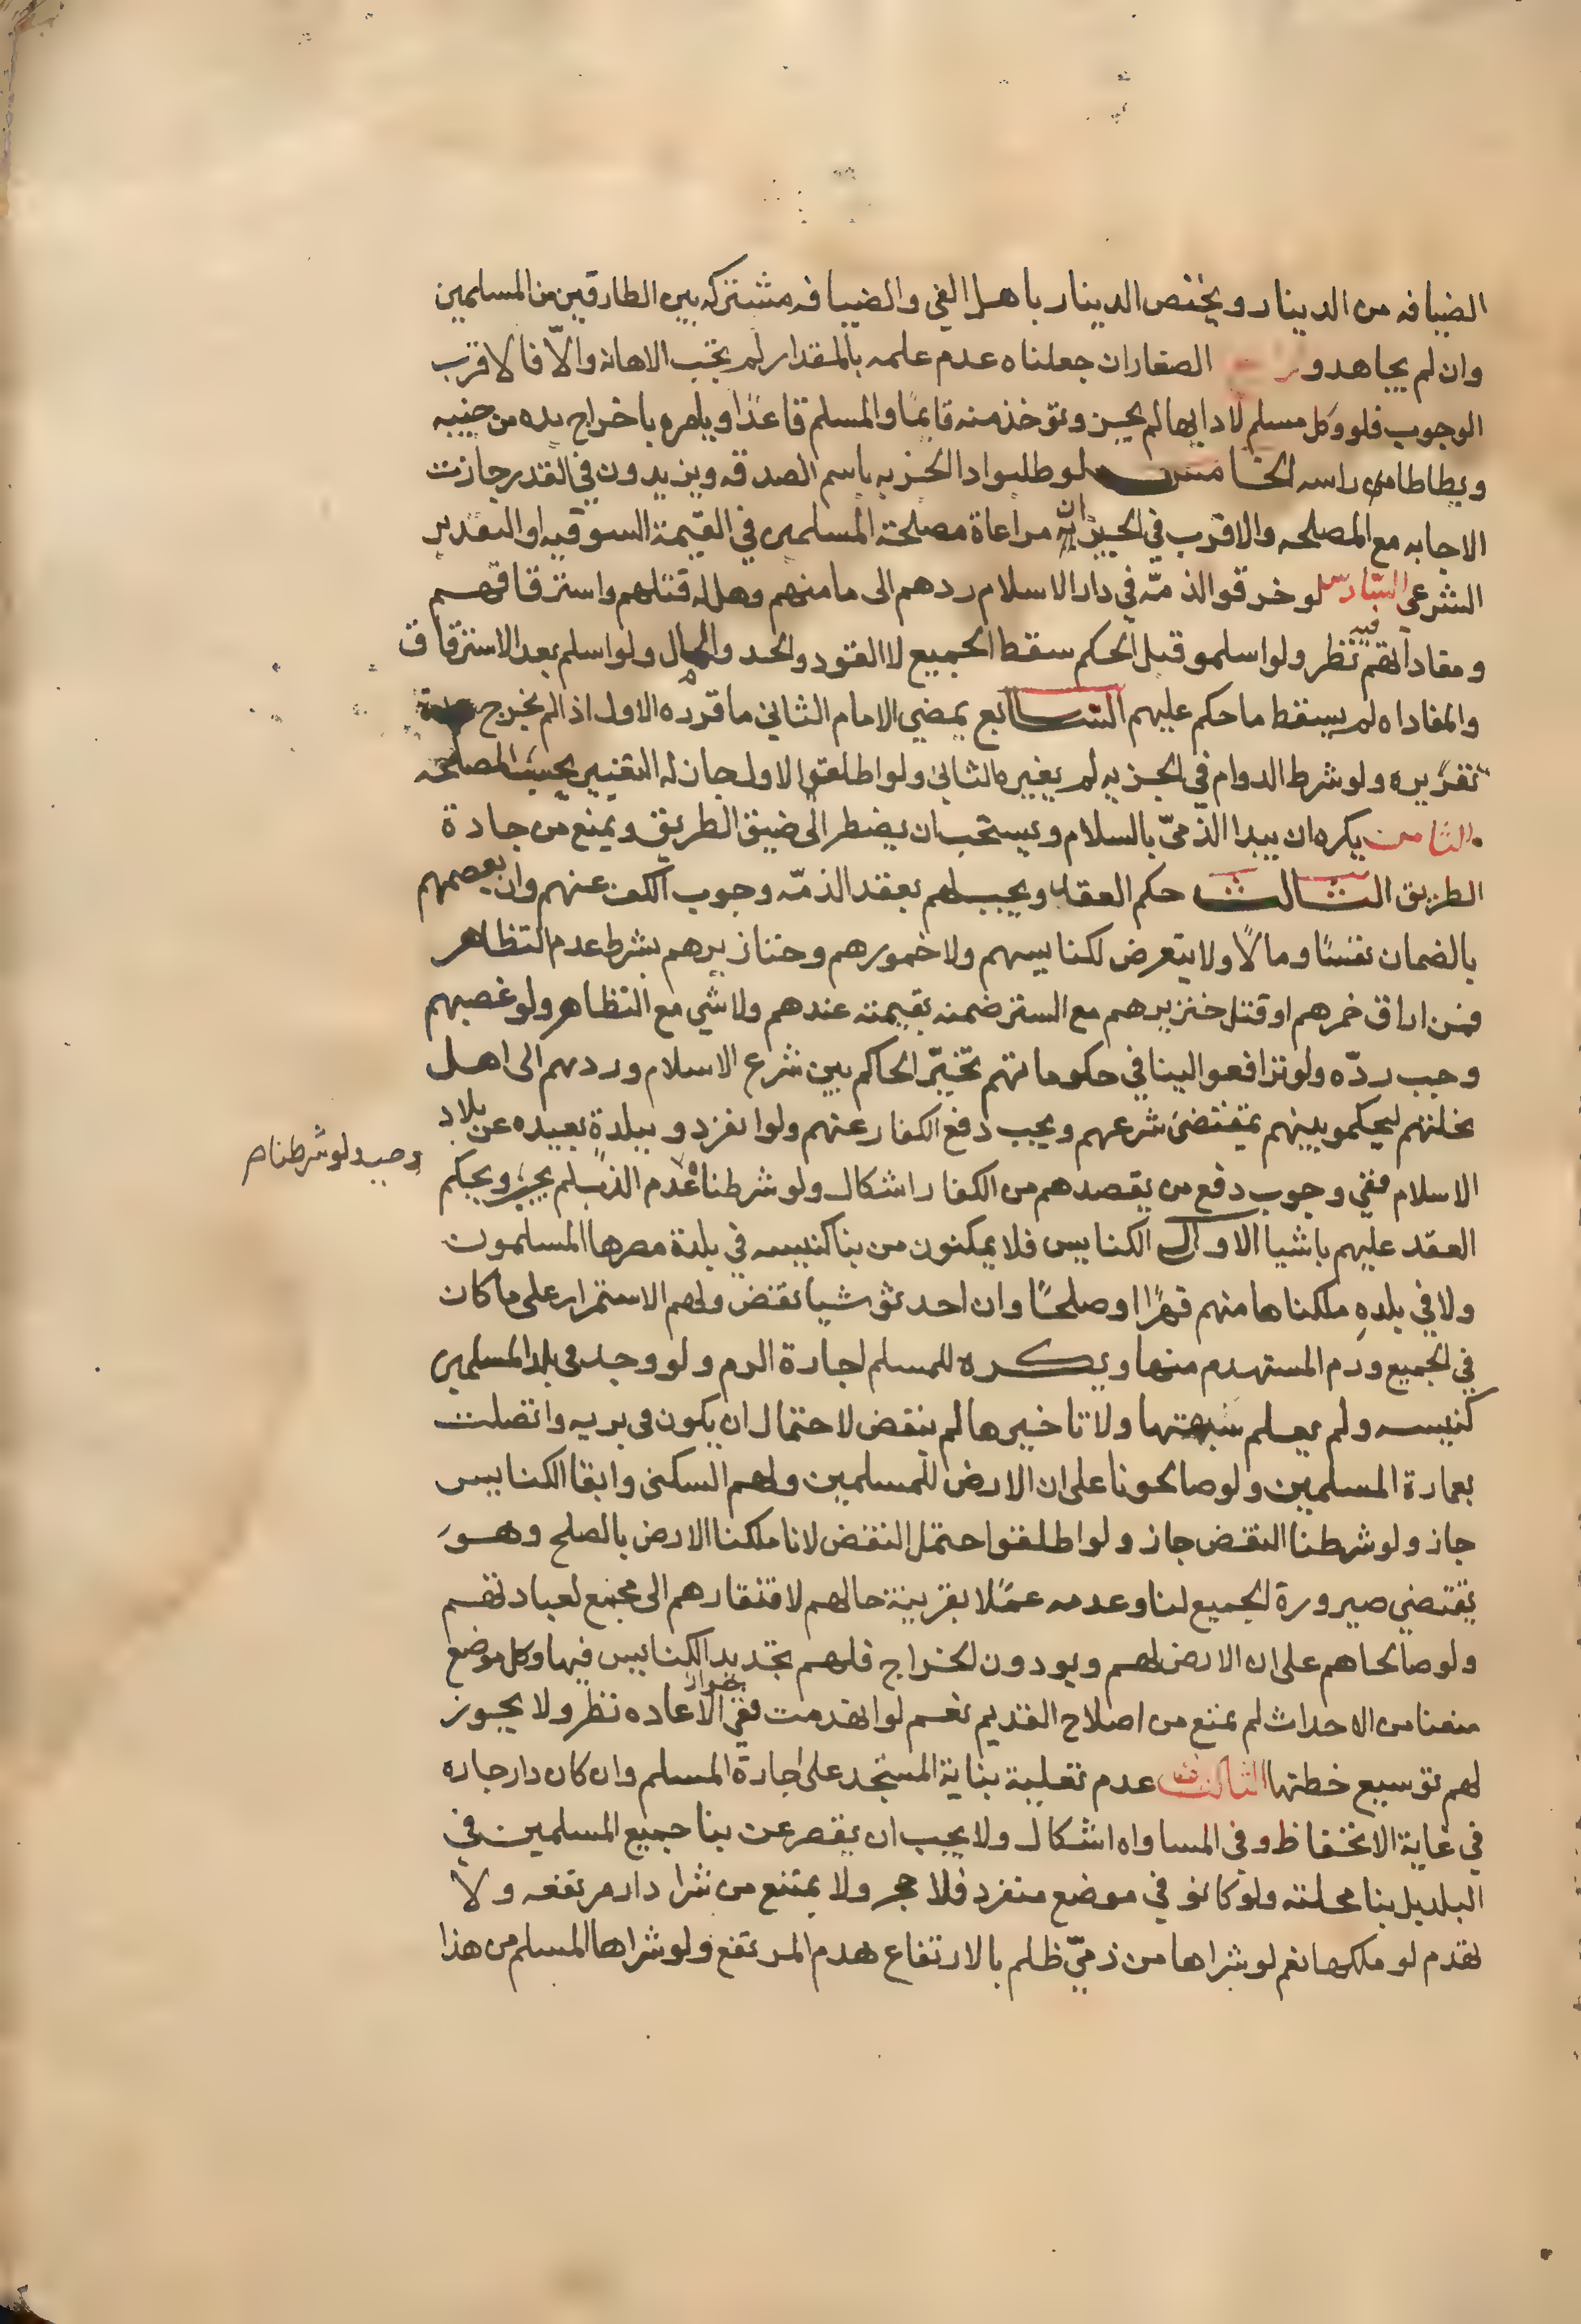 الضيافه من الدينار ويختص الدينار باهل الفي والضيافه مشتركه بين الطارقين من المسلمين
وان لم يجاهدو الصغار ان جعلناه عدم علمه بالمقدار لم يجب الاهانه والّا فالاقرب
الوجوب فلو وكل مسلم لادايها لم يجز وتؤخذ منه قايمًا والمسلم قاعدًا ويامره باخراج يده من جيبه
ويطاطا من راسه الخامس لو طلبوا دا الجزيه باسم الصدقه ويزيدون في القدر جازت
الاجابه مع المصلحه والاقرب في الجبران مراعاة مصلحة المسلمين في القيمة السوقيه او التقدير
الشرعي السادس لو خرقو الذمّه في دار الاسلام ردهم الى مامنهم وهل له قتلهم واسترقاقهم
ومفاداتهم فيه نظر ولو اسلمو قبل الحكم سقط الجميع لا القود والحد والمال ولو اسلم بعد الاسترقاق
والمفاداه لم يسقط ما حكم عليهم السابع يمضي الامام الثاني ما قرره الاول اذا لم يخرج مدة
تقريره ولو شرط الدوام في الجزيه لم يغيره الثاني ولو اطلقوا الاول جاز له التغيير بحسب المصلحه
الثامن يكره ان يبدا الذميّ بالسلام ويستحب ان يضطر الى ضيق الطريق ويمنع من جادة
الطريق الثالث حكم العقد ويجب لهم بعقد الذمّه وجوب الكف عنهم وان يعصمهم
بالضمان نفسًا ومالًا ولا يتعرض لكنايسهم ولا خمورهم وخنازيرهم بشرط عدم التظاهر
فمن اراق خمرهم او قتل خنزيرهم مع الستر ضمنه بقيمته عندهم ولا شي مع التظاهر ولو غصبهم
وجب ردّه ولو ترافعوا الينا في حكوماتهم تخيّر الحاكم بين شرع الاسلام وردهم الى اهل
نحلتهم ليحكمو بينهم بمقتضى شرعهم ويجب دفع الكفار عنهم ولو انفردو ببلدة بعيده عن بلاد
وجب ولو شرطناه
الاسلام ففي وجوب دفع من يقصدهم من الكفار اشكال ولو شرطنا عدم الذب لم يجز ويحكم
العقد عليهم باشيا الاول الكنايس فلا يمكنون من بنا كنيسه في بلدة مصرها المسلمون
ولا في بلدهِ ملكناها منهم قهرًا او صلحًا وان احدثو شيا نقض ولهم الاستمرار على ما كان
في الجميع ورم المستهدم منها ويكره للمسلم اجارة الرم ولو وجد في بلد المسلمين
كنيسه ولم يعلم سبقتها ولا تاخيرها لم ينقض لاحتمال ان يكون في بريه واتصلت
بعمارة المسلمين ولو صالحونا على ان الارض للمسلمين ولهم السكنى وابقا الكنايس
جاز ولو شرطنا النقض جاز ولو اطلقوا احتمل النقض لانا ملكنا الارض بالصلح وهو
يقتضي صيرورة الجميع لنا وعدمه عملًا بقرينة حالهم لافتقارهم الى مجتمع لعبادتهم
ولو صالحناهم على ان الارض لهم ويودون الخراج فلهم تجديد الكنايس فيها وكل موضع
منعنا من الاحداث لم يمنع من اصلاح القديم نعم لو انهدمت ففي جواز الاعاده نظر ولا يجوز
لهم توسيع خطتها الثالث عدم تعلية بناية المستجد على اجارة المسلم وان كان دار جاره
في غاية الانخفاظ وفي المساواه اشكال ولا يجب ان يقصر عن بنا جميع المسلمين في
البلد بل بنا محلته ولو كانو في موضع منفرد فلا حجر ولا يمتنع من شرا دار مرتفعه ولا
تهدم لو ملكها نعم لو شراها من ذميّ ظلم بالارتفاع هدم المرتفع ولو شراها المسلم من هذا